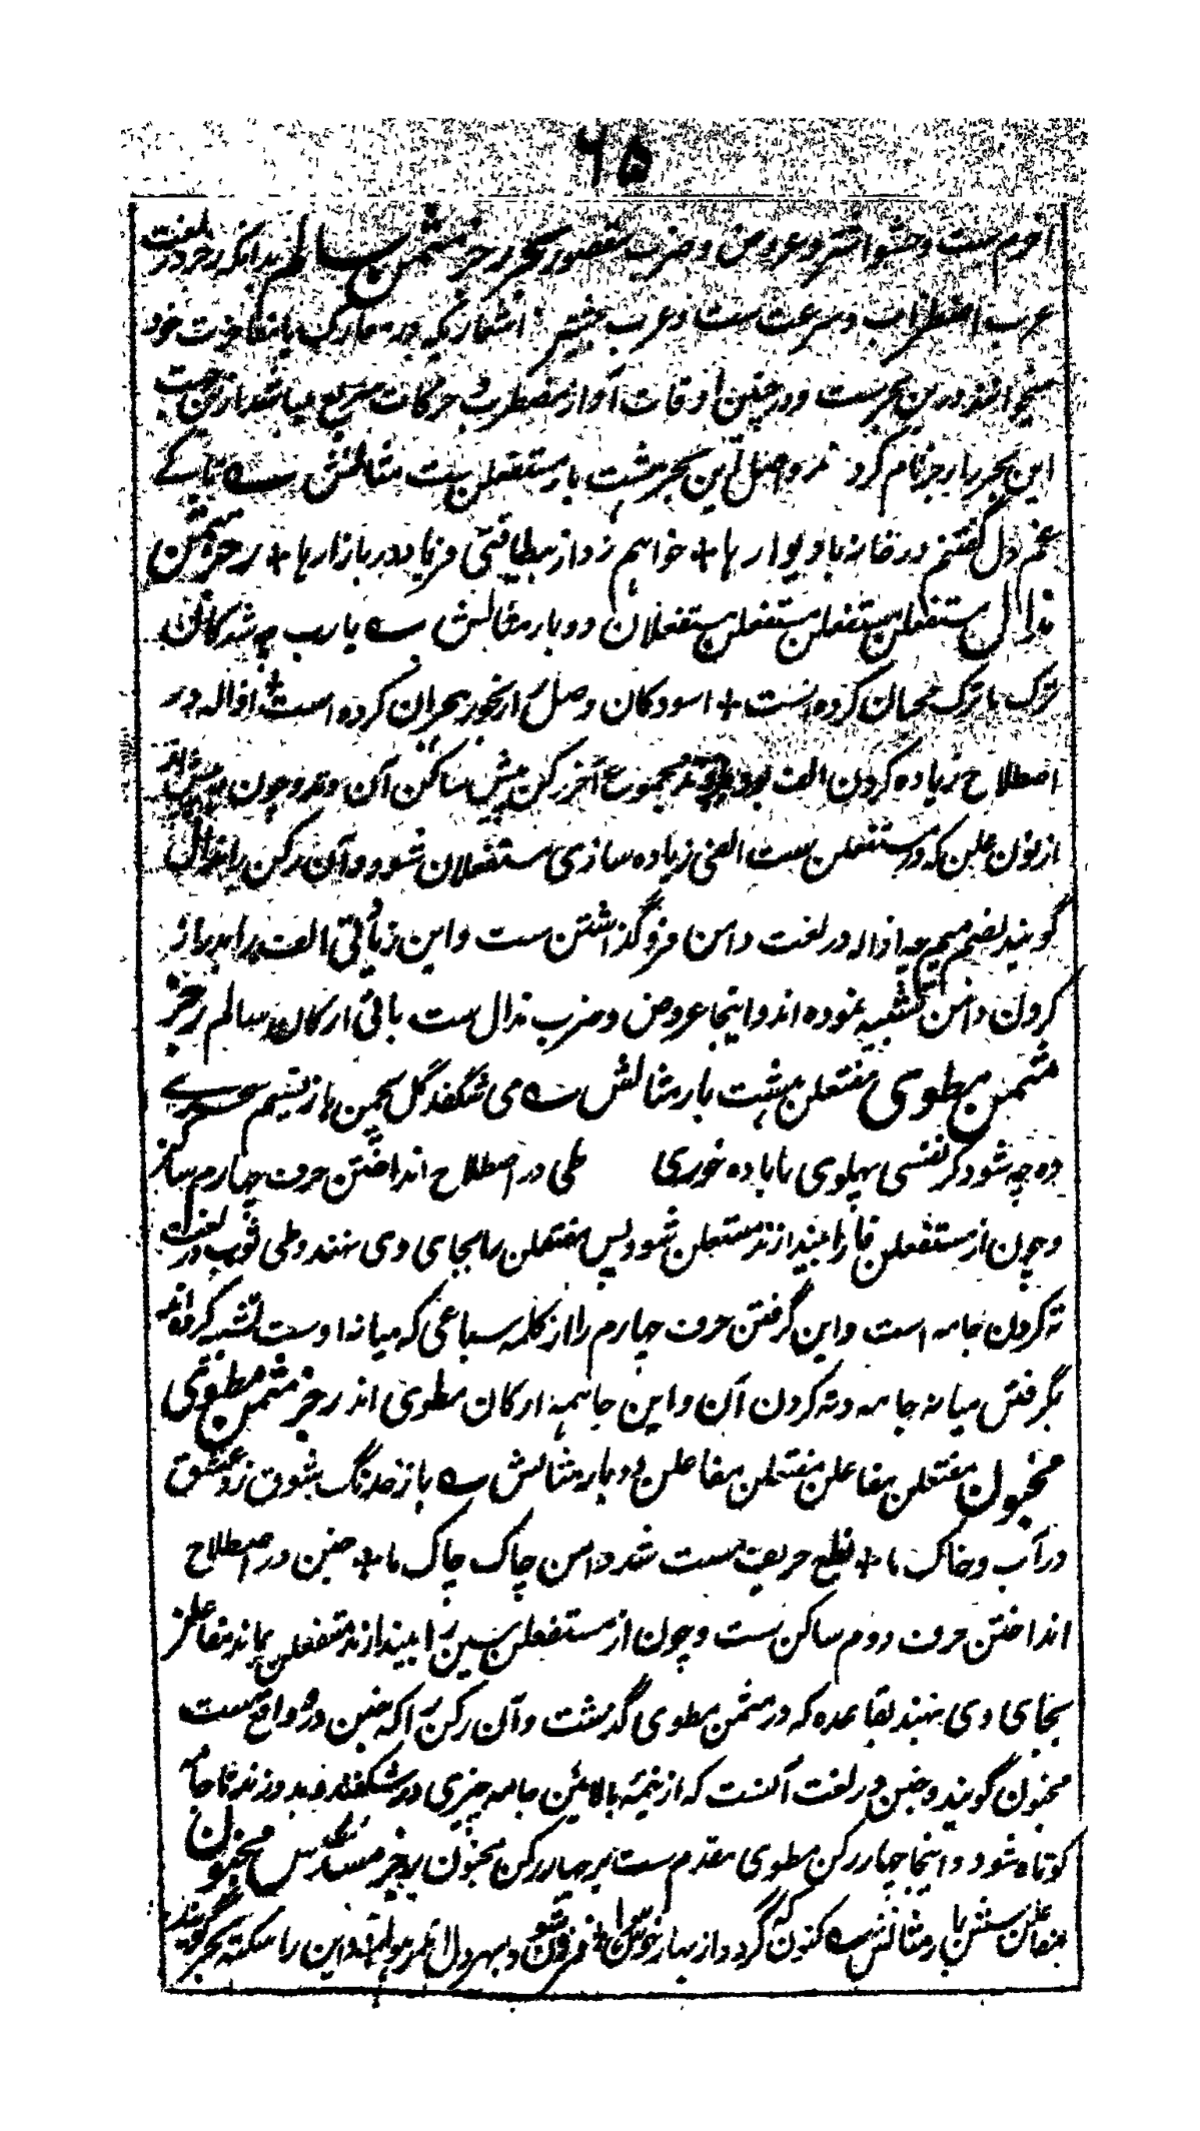 ۶۵
اخرم ست و حشو اشتر و عروض و ضرب مقصور بحر رجز مثمن سالم بدانکه رجز در لغت
عرب اضطراب و سرعت ست و عرب بیشتر اشعاریکه در معارک یا مفاخرت خود
میخوانند درین بحرست و در چنین اوقات آواز مضطرب و حرکات سریع میباشد ازین جهت
این بحر را رجز نام کردند و اصل این بحر هشت بار مستفعلن ست مثالش ؎ تا کے
غم دل گفتنم در خانه با دیوارها + خواهم زد از بیطاقتی فریاد در بازارها + رجز مثمن
مذال مستفعلن مستفعلن مستفعلن مستفعلان دو بار مثالش ؎ یا رب چه شد کان
ترک ما ترک محبان کرده است + اسودکان وصل را رنجور هجران کرده است اذاله در
اصطلاح زیاده کردن الف بود در وتد مجموع آخر رکن پیش ساکن آن وتد و چون پیش
از نون علن که در مستفعلن ست الفی زیاده سازی مستفعلان شود و آن رکن را مذال
گویند بضم میم چه اذاله در لغت دامن فروگذاشتن ست و این زیادتی الف را بدراز
کردن دامن تشبیه نموده اند و اینجا عروض و ضرب مذال ست باقی ارکان سالم رجز
مثمن مطوی مفتعلن هشت بار مثالش ؎ می شگفد گل بچمن باز نسیم سحرے
ده چه شود گر نفسی پهلوی ما باده خوری طی در اصطلاح انداختن حرف چهارم ساکن
و چون از مستفعلن فا را بیندازند مستعلن شود پس مفتعلن را بجای وی نهند و طی ثوب در لغت
ته کردن جامه است و این گرفتن حرف چهارم را از کلمه سباعی که میانه اوست تشبیه کرده اند
بگرفتن میانه جامه و ته کردن آن و این جا همه ارکان مطوی اند رجز مثمن مطوی
مخبون مفتعلن مفاعلن مفتعلن مفاعلن دو بار مثالش ؎ باز خدنگ شوق زد عشق
در آب و خاک ما + نطع حریف مست شد دامن چاک چاک ما + خبن در اصطلاح
انداختن حرف دوم ساکن ست و چون از مستفعلن سین را بیندازند متفعلن بماند مفاعلن
بجای وی نهند بقاعده که در مثمن مطوی گذشت و آن رکن را که خبن در و واقع ست
مخبون گویند و خبن در لغت آنست که از نیمه بالائین جامه چیزی در شکنند و بدوزند تا جامه
کوتاه شود و اینجا چهار رکن مطوی مقدم ست بر چهار رکن مخبون رجز مسدس مخبون
مفاعلن شش بار مثالش ؎ کنون که گرد از بهار فزون شود و این را سکته بحر گویند